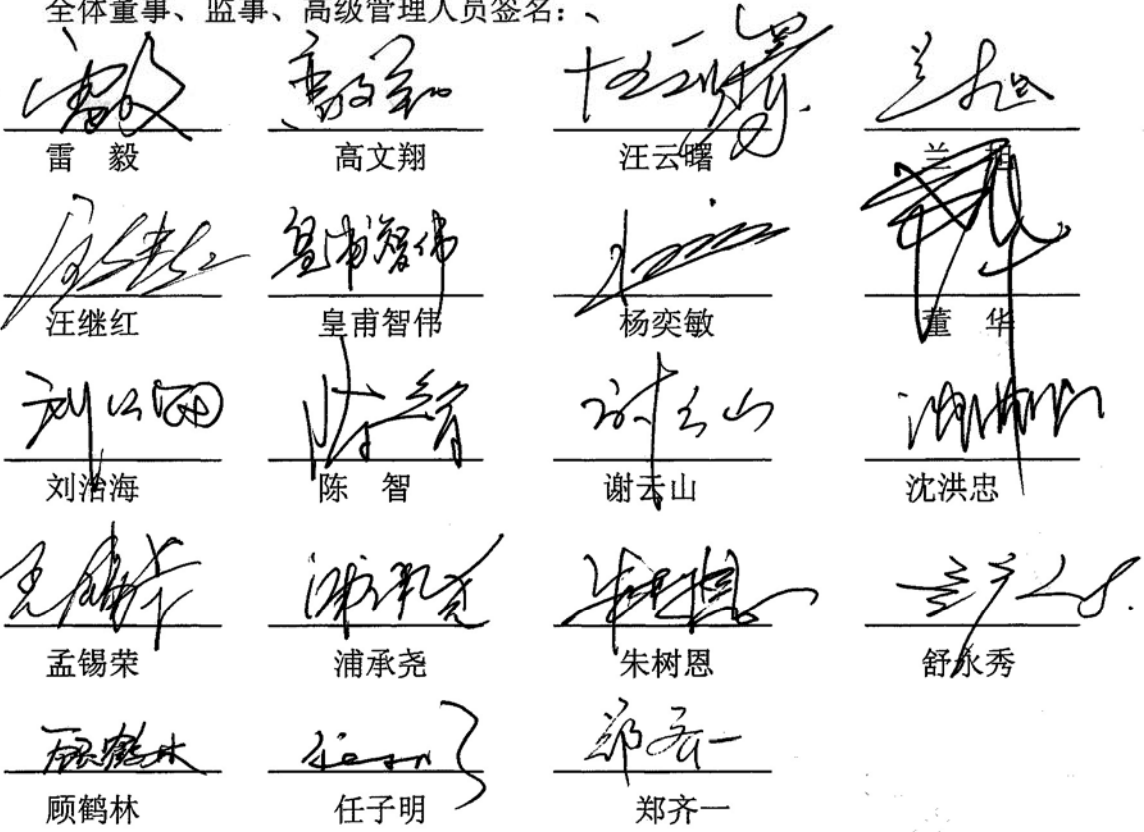 全体董事、监事、高级管理人员签名：
雷 毅 高文翔 汪云曙 兰 旭
汪继红 皇甫智伟 杨奕敏 董 华
刘治海 陈 智 谢云山 沈洪忠
孟锡荣 浦承尧 朱树恩 舒永秀
顾鹤林 任子明 郑齐一